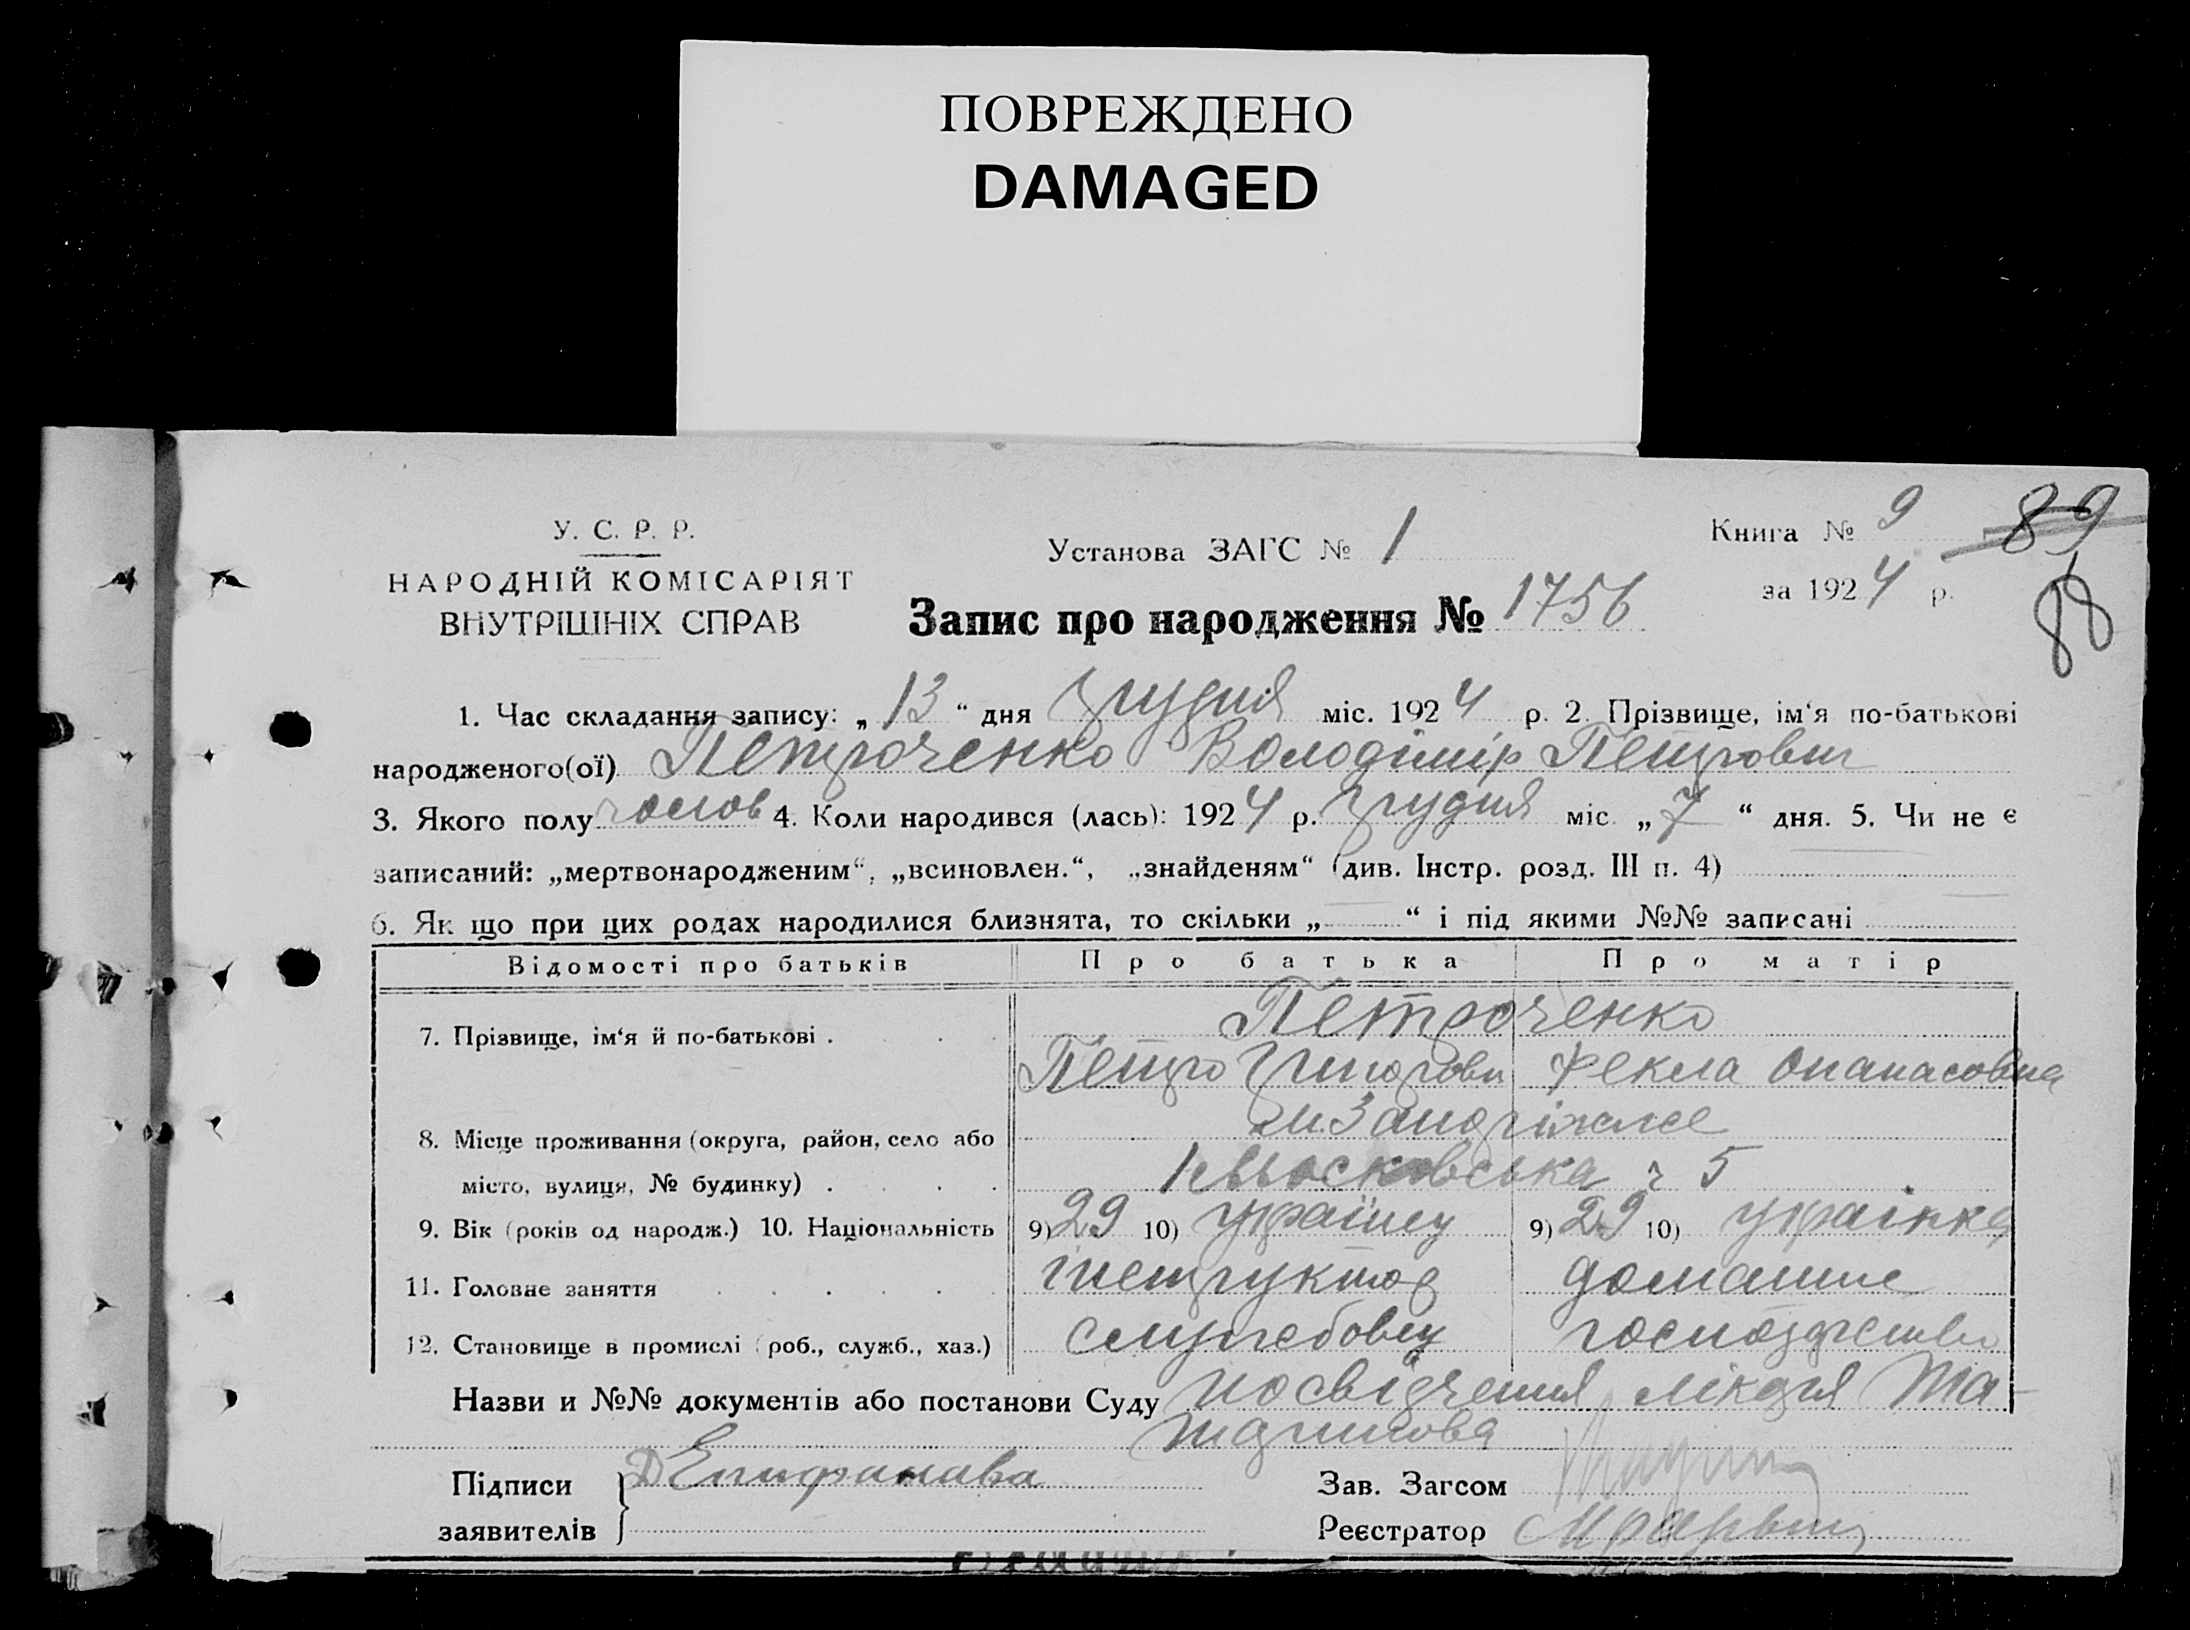 ПОВРЕЖДЕНО
DAMAGED
У. С. Р. Р.
НАРОДНІЙ КОМІСАРІЯТ
ВНУТРІШНІХ СПРАВ
Установа ЗАГС № 1
Книга № 9
89
за 1924 р.
88
Запис про народження № 1756
1. Час складання запису: „13“ дня грудня міс. 1924 р. 2. Прізвище, ім‘я по-батькові
народженого(ої) Петроченко Володімір Петрович
3. Якого полу чолов 4. Коли народився (лась): 1924 р. грудня міс. „7“ дня. 5. Чи не є
записаний: „мертвонародженим“, „всиновлен.“, „знайденям“ (див. Інстр. розд. III п. 4)
6. Як що при цих родах народилися близнята, то скільки „ “ і під якими №№ записані
Відомості про батьків Про батька Про матір
Петроченко
7. Прізвище, ім‘я й по-батькові
Петро Григорови Фекла Опанасовна
м. Запоріжжє
8. Місце проживання (округа, район, село або
місто, вулиця, № будинку) Московська 5
9. Вік (років од народж.) 10. Національність 9) 29 10) українец 9) 29 10) українка
11. Головне заняття інструктор домашнє
12. Становище в промислі (роб., служб., хаз.) службовец господрство
Назви и №№ документів або постанови Суду посвідчення лікаря Та-
Підписи Епифанова Зав. Загсом
заявителів Реєстратор